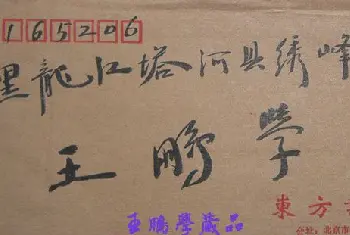 165206
黑龍江塔河县绣峰
王鹏学
東方
王鵬學藏品
北京市